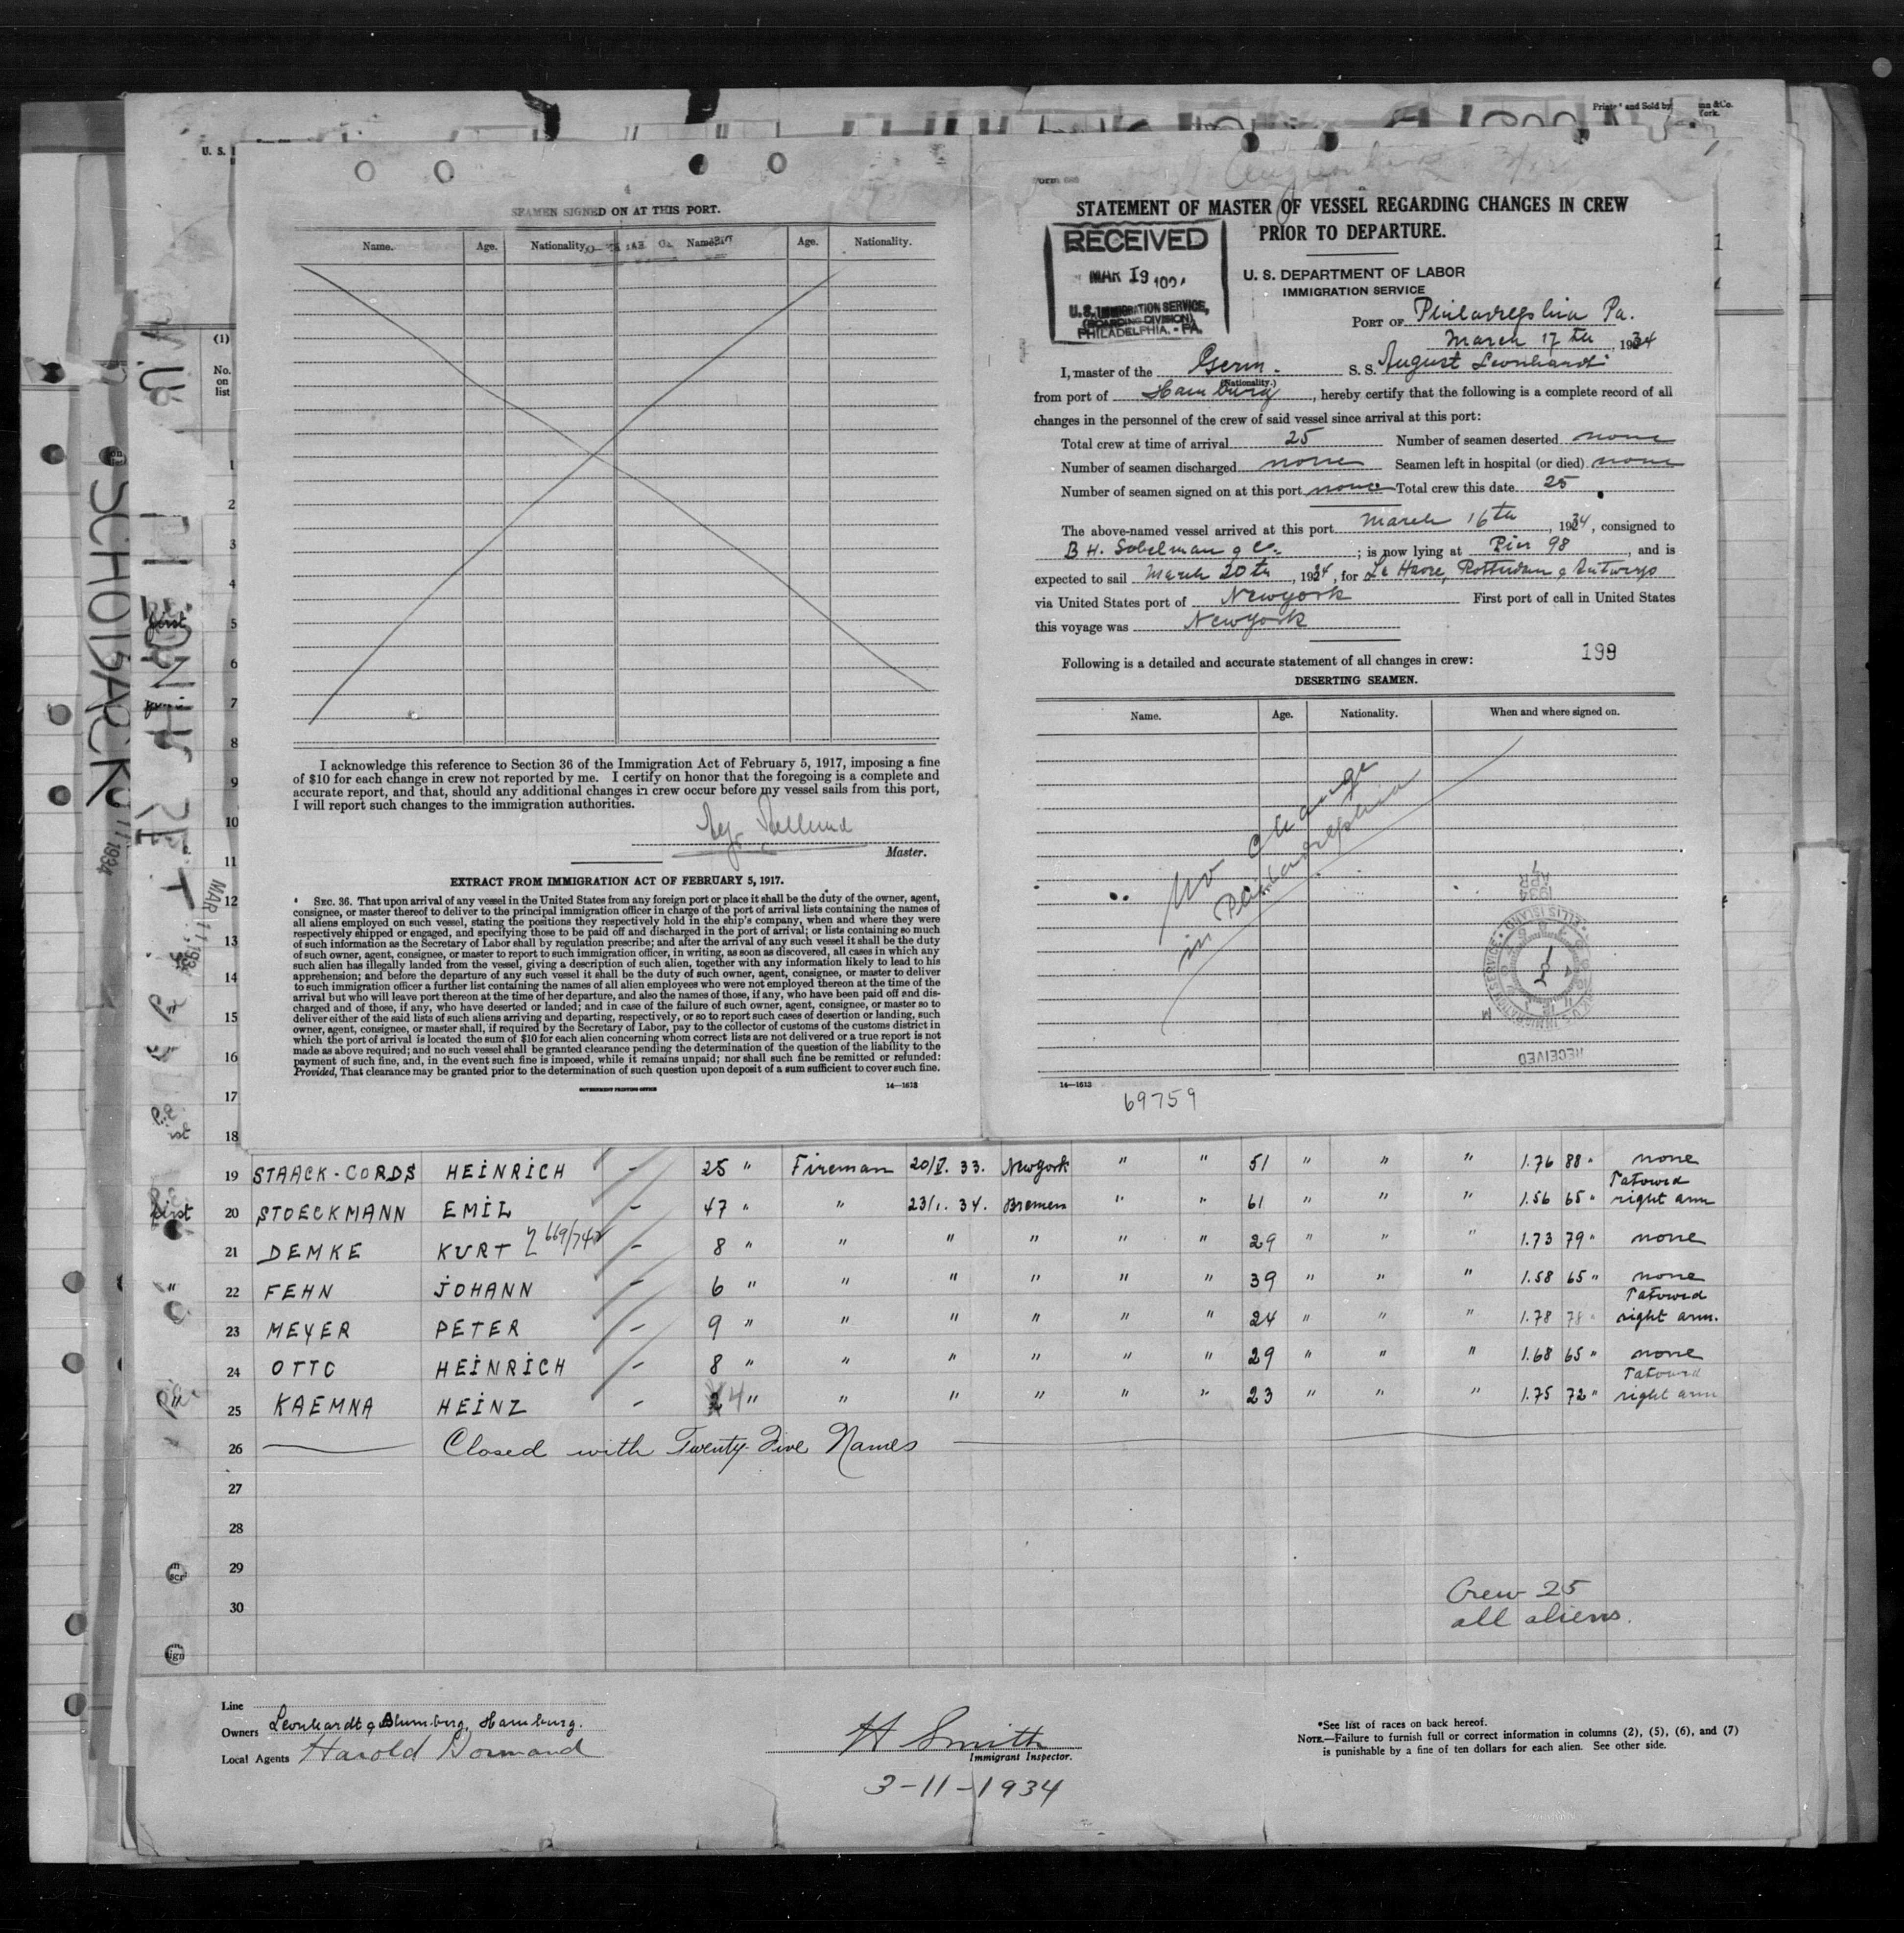 SEAMEN SIGNED ON AT THIS PORT.
Name. Age. Nationality. Name. Age. Nationality.
I acknowledge this reference to Section 36 of the Immigration Act of February 5, 1917, imposing a fine
of $10 for each change in crew not reported by me. I certify on honor that the foregoing is a complete and
accurate report, and that, should any additional changes in crew occur before my vessel sails from this port,
I will report such changes to the immigration authorities.
Master.
EXTRACT FROM IMMIGRATION ACT OF FEBRUARY 5, 1917.
SEC. 36. That upon arrival of any vessel in the United States from any foreign port or place it shall be the duty of the owner, agent,
consignee, or master thereof to deliver to the principal immigration officer in charge of the port of arrival lists containing the names of
all aliens employed on such vessel, stating the positions they respectively hold in the ship's company, when and where they were
respectively shipped or engaged, and specifying those to be paid off and discharged in the port of arrival; or lists containing so much
of such information as the Secretary of Labor shall by regulation prescribe; and after the arrival of any such vessel it shall be the duty
of such owner, agent, consignee, or master to report to such immigration officer, in writing, as soon as discovered, all cases in which any
such alien has illegally landed from the vessel, giving a description of such alien, together with any information likely to lead to his
apprehension; and before the departure of any such vessel it shall be the duty of such owner, agent, consignee, or master to deliver
to such immigration officer a further list containing the names of all alien employees who were not employed thereon at the time of the
arrival but who will leave port thereon at the time of her departure, and also the names of those, if any, who have been paid off and dis-
charged and of those, if any, who have deserted or landed; and in case of the failure of such owner, agent, consignee, or master so to
deliver either of the said lists of such aliens arriving and departing, respectively, or so to report such cases of desertion or landing, such
owner, agent, consignee, or master shall, if required by the Secretary of Labor, pay to the collector of customs of the customs district in
which the port of arrival is located the sum of $10 for each alien concerning whom correct lists are not delivered or a true report is not
made as above required; and no such vessel shall be granted clearance pending the determination of the question of the liability to the
payment of such fine, and, in the event such fine is imposed, while it remains unpaid; nor shall such fine be remitted or refunded:
Provided, That clearance may be granted prior to the determination of such question upon deposit of a sum sufficient to cover such fine.
GOVERNMENT PRINTING OFFICE 14—1613
STATEMENT OF MASTER OF VESSEL REGARDING CHANGES IN CREW
PRIOR TO DEPARTURE.
RECEIVED
MAR 19
U. S. IMMIGRATION SERVICE,
(BOARDING DIVISION)
PHILADELPHIA, - PA.
U. S. DEPARTMENT OF LABOR
IMMIGRATION SERVICE
PORT OF Philadelphia Pa.
March 17th, 1934
I, master of the Germ. S. S. August Leonhardt
(Nationality.)
from port of Hamburg, hereby certify that the following is a complete record of all
changes in the personnel of the crew of said vessel since arrival at this port:
Total crew at time of arrival 25 Number of seamen deserted none
Number of seamen discharged none Seamen left in hospital (or died) none
Number of seamen signed on at this port none Total crew this date 25
The above-named vessel arrived at this port March 16th, 1934, consigned to
B H. Sobelman & Co. ; is now lying at Pier 98, and is
expected to sail March 20th, 1934, for Le Havre, Rotterdam & Antwerp
via United States port of Newyork First port of call in United States
this voyage was Newyork
199
Following is a detailed and accurate statement of all changes in crew:
DESERTING SEAMEN.
Name. Age. Nationality. When and where signed on.
No change
in Philadelphia
1934
APR
ELLIS ISLAND
RECEIVED
14—1613
69759
U. S.
(1)
No.
on
list
1
2
3
4
5
6
7
8
9
10
11
12
13
14
15
16
17
18
SCHODACK
MAR 11 1934
19 STAACK-CORDS HEINRICH - 25 " Fireman 20/V. 33. Newyork " " 51 " " " 1.76 88 " none
20 STOECKMANN EMIL - 47 " " 23/1. 34. Bremen " " 61 " " " 1.56 65 " Tatowed right arm
21 DEMKE KURT 669/742 - 8 " " " " " " 29 " " " 1.73 79 " none
22 FEHN JOHANN - 6 " " " " " " 39 " " " 1.58 65 " none
23 MEYER PETER - 9 " " " " " " 24 " " " 1.78 78 " Tatowed right arm.
24 OTTO HEINRICH - 8 " " " " " " 29 " " " 1.68 65 " none
25 KAEMNA HEINZ - 4 " " " " " " 23 " " " 1.75 72 " Tatowed right arm
26 Closed with Twenty-Five Names
27
28
29
30
Crew 25
all aliens.
Line
Owners Leonhardt & Blumberg, Hamburg.
Local Agents Harold Dormand
H Smith
Immigrant Inspector.
3-11-1934
*See list of races on back hereof.
NOTE.—Failure to furnish full or correct information in columns (2), (5), (6), and (7)
is punishable by a fine of ten dollars for each alien. See other side.